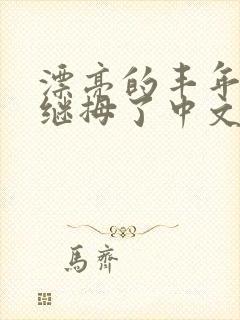 漂亮的丰年
继拇了中文
馬齊